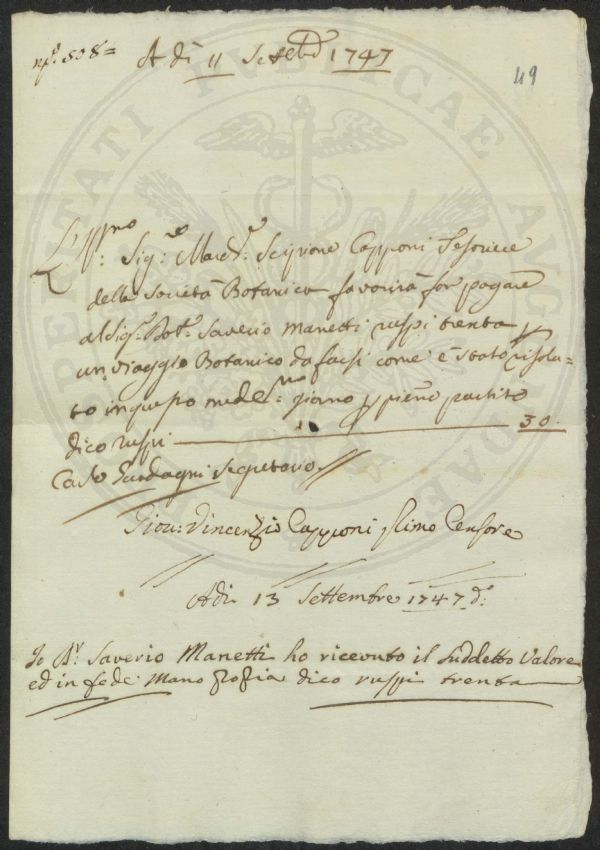 A dì 11 Settebre 1747
49
Sige. Scipione Capponi Tesoriere
della Società Botanica favorirà far pagare
al Sigr. Dott. Saverio Manetti ruspi trenta p
un viaggio Botanico da farsi come è stato risolu=
to in questo giorno p pieno partito
dico ruspi — 30.
segretario
Giov: Vincenzio Capponi Censore
Adi 13 Settembre 1747 d.
Io Dr. Saverio Manetti ho ricevuto il suddetto Valore
ed in fede Mano dico ruspi trenta
PUBLICAE